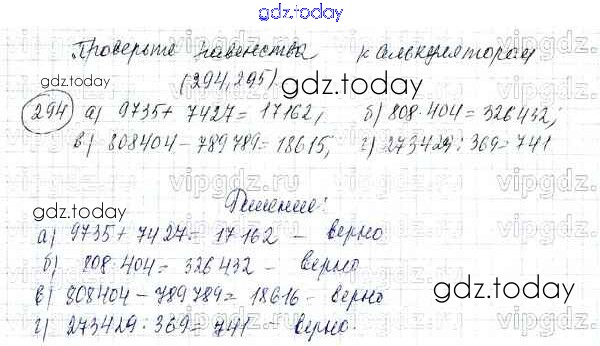 gdz.today
Проверьте равенства калькулятором
(294, 295)
gdz.today
294 а) 9735 + 7427 = 17162; б) 808·404 = 326432;
в) 808404 - 789789 = 18615, г) 273429 : 369 = 741
vipgdz.ru
Решение:
gdz.today
а) 9735 + 7427 = 17162 - верно
б) 808·404 = 326432 - верно
gdz.today
в) 808404 - 789789 = 18616 - верно
г) 273429 : 369 = 741 - верно.